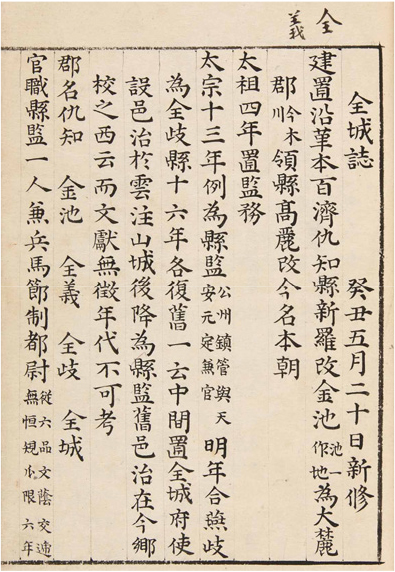 全義
全城誌 癸丑五月二十日新修
建置沿革本百濟仇知縣新羅改金池池一作地為大麓
郡今木川領縣高麗改今名本朝
太祖四年置監務
太宗十三年例為縣監公州鎮管與天安元定兼官明年合燕歧
為全歧縣十六年各復舊一云中間置全城府使
設邑治於雲注山城後降為縣監舊邑治在今鄉
校之西云而文獻無徵年代不可考
郡名仇知 金池 全義 全歧 全城
官職縣監一人兼兵馬節制都尉從六品文蔭交遞無恒規小限六年